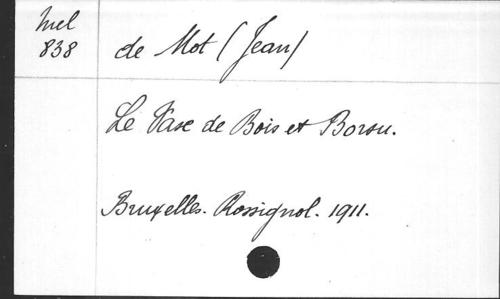 Mel
838
de Mot (Jean)
Le Vase de Bois et Borsu.
Bruxelles. Rossignol. 1911.